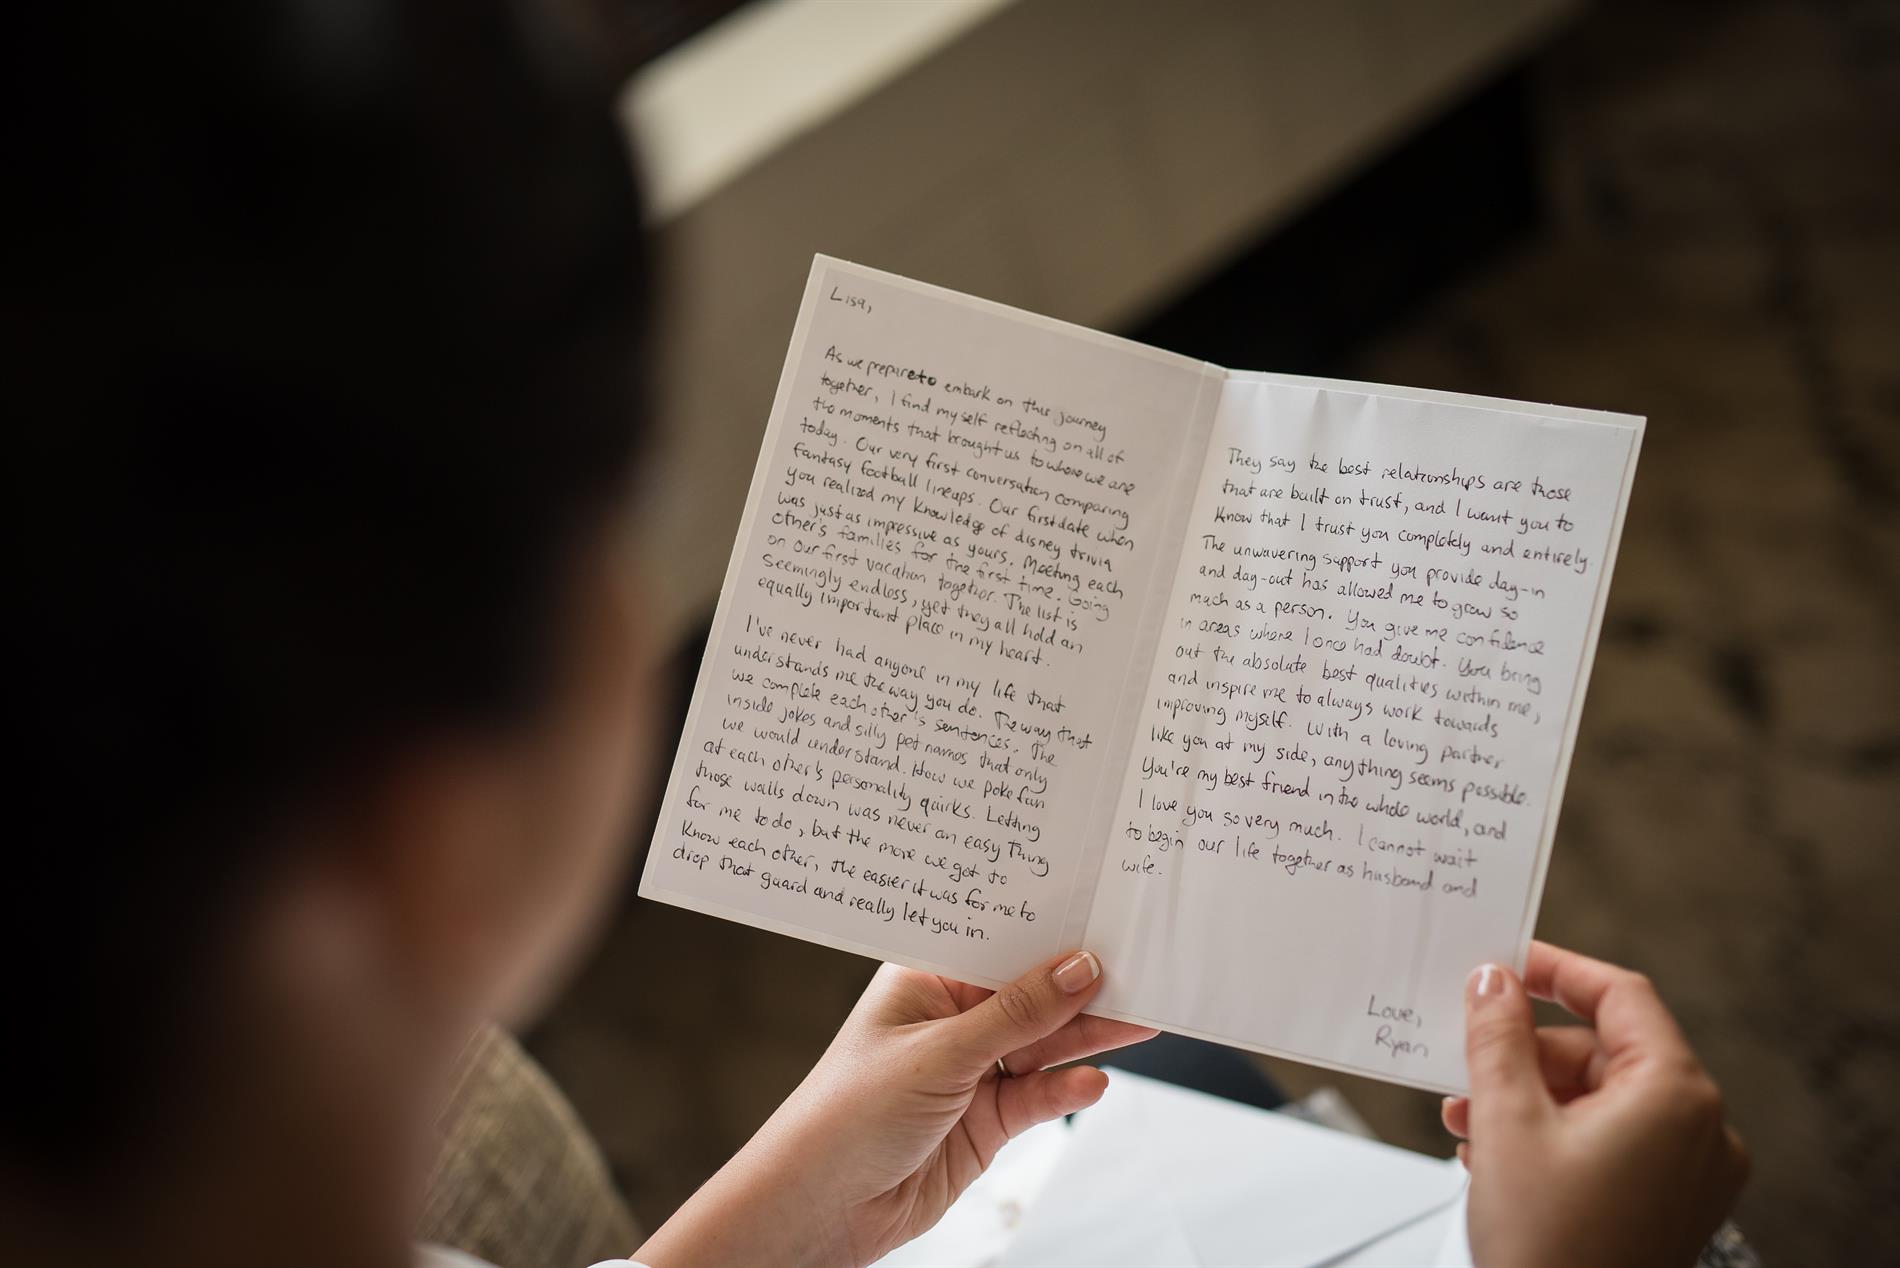 Lisa,
As we prepare to embark on this journey
together, I find myself reflecting on all of
the moments that brought us to where we are
today. Our very first conversation comparing
fantasy football lineups. Our first date when
you realized my knowledge of disney trivia
was just as impressive as yours. Meeting each
other's families for the first time. Going
on our first vacation together. The list is
seemingly endless, yet they all hold an
equally important place in my heart.
I've never had anyone in my life that
understands me the way you do. The way that
we complete each other's sentences. The
inside jokes and silly pet names that only
we would understand. How we poke fun
at each other's personality quirks. Letting
those walls down was never an easy thing
for me to do, but the more we got to
know each other, the easier it was for me to
drop that guard and really let you in.
They say the best relationships are those
that are built on trust, and I want you to
know that I trust you completely and entirely.
The unwavering support you provide day-in
and day-out has allowed me to grow so
much as a person. You give me confidence
in areas where I once had doubt. You bring
out the absolute best qualities within me,
and inspire me to always work towards
improving myself. With a loving partner
like you at my side, anything seems possible.
You're my best friend in the whole world, and
I love you so very much. I cannot wait
to begin our life together as husband and
wife.
Love,
Ryan